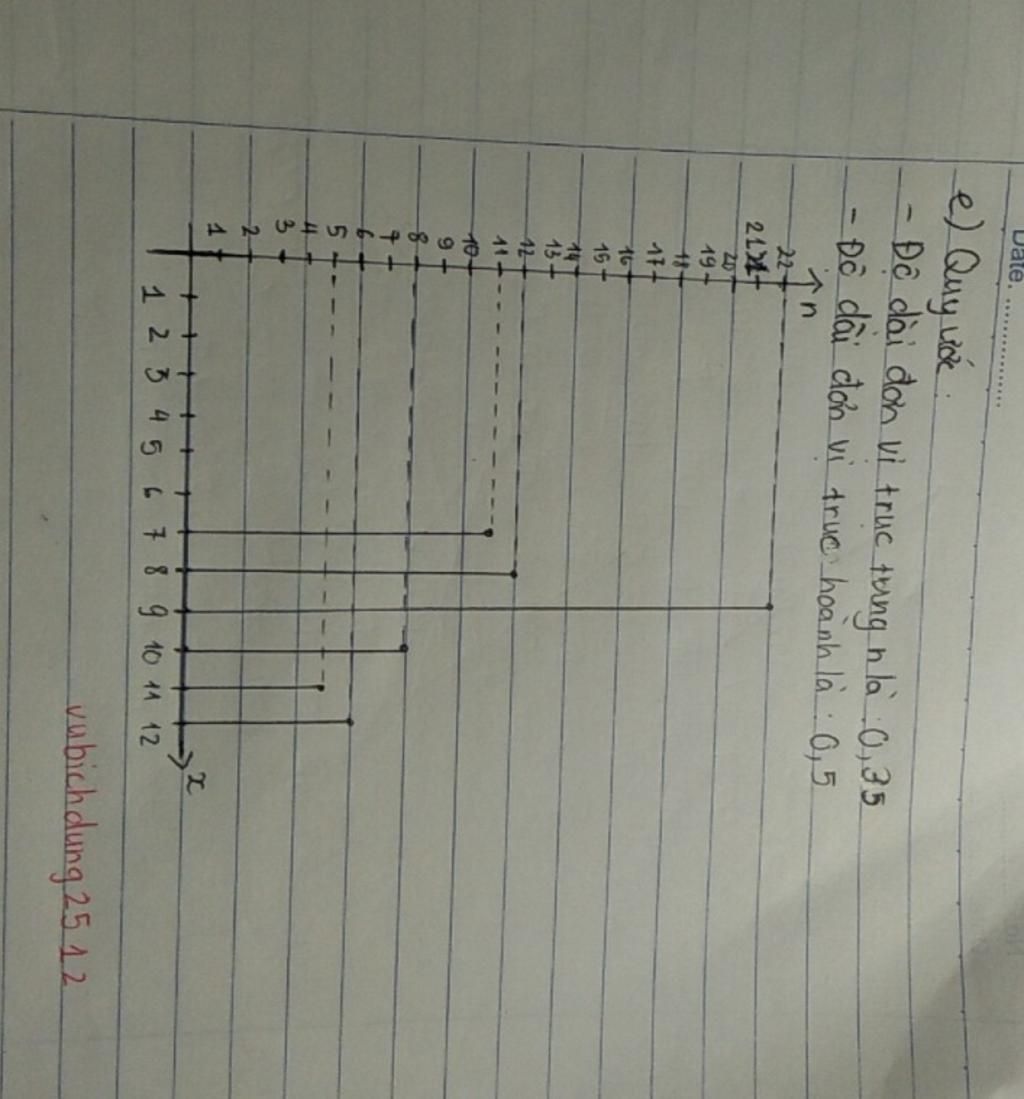 Date. ............
e) Quy ước.
- Độ dài đơn vị trục tung n là : 0,35
- Độ dài đơn vị trục hoành là : 0,5
n
22
21
20
19
18
17
16
15
14
13
12
11
10
9
8
7
6
5
4
3
2
1
1 2 3 4 5 6 7 8 9 10 11 12 x
vubichdung2512